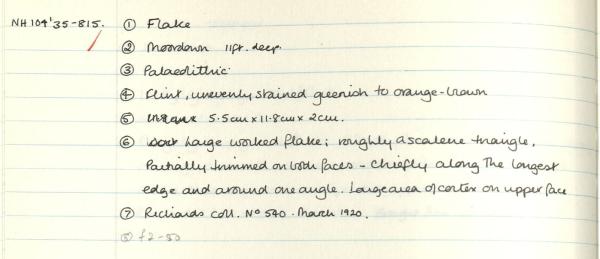 NH104'35-815. ① Flake
② Moordown 11ft. deep.
③ Palaeolithic.
④ Flint, unevenly stained greenish to orange-brown
⑤ 5.5cm x 11.8cm x 2cm.
⑥ Large worked flake; roughly a scalene triangle.
Partially trimmed on both faces - chiefly along the longest
edge and around one angle. Large area of cortex on upper face
⑦ Richards coll. No 540. March 1920.
⑧ £2-50